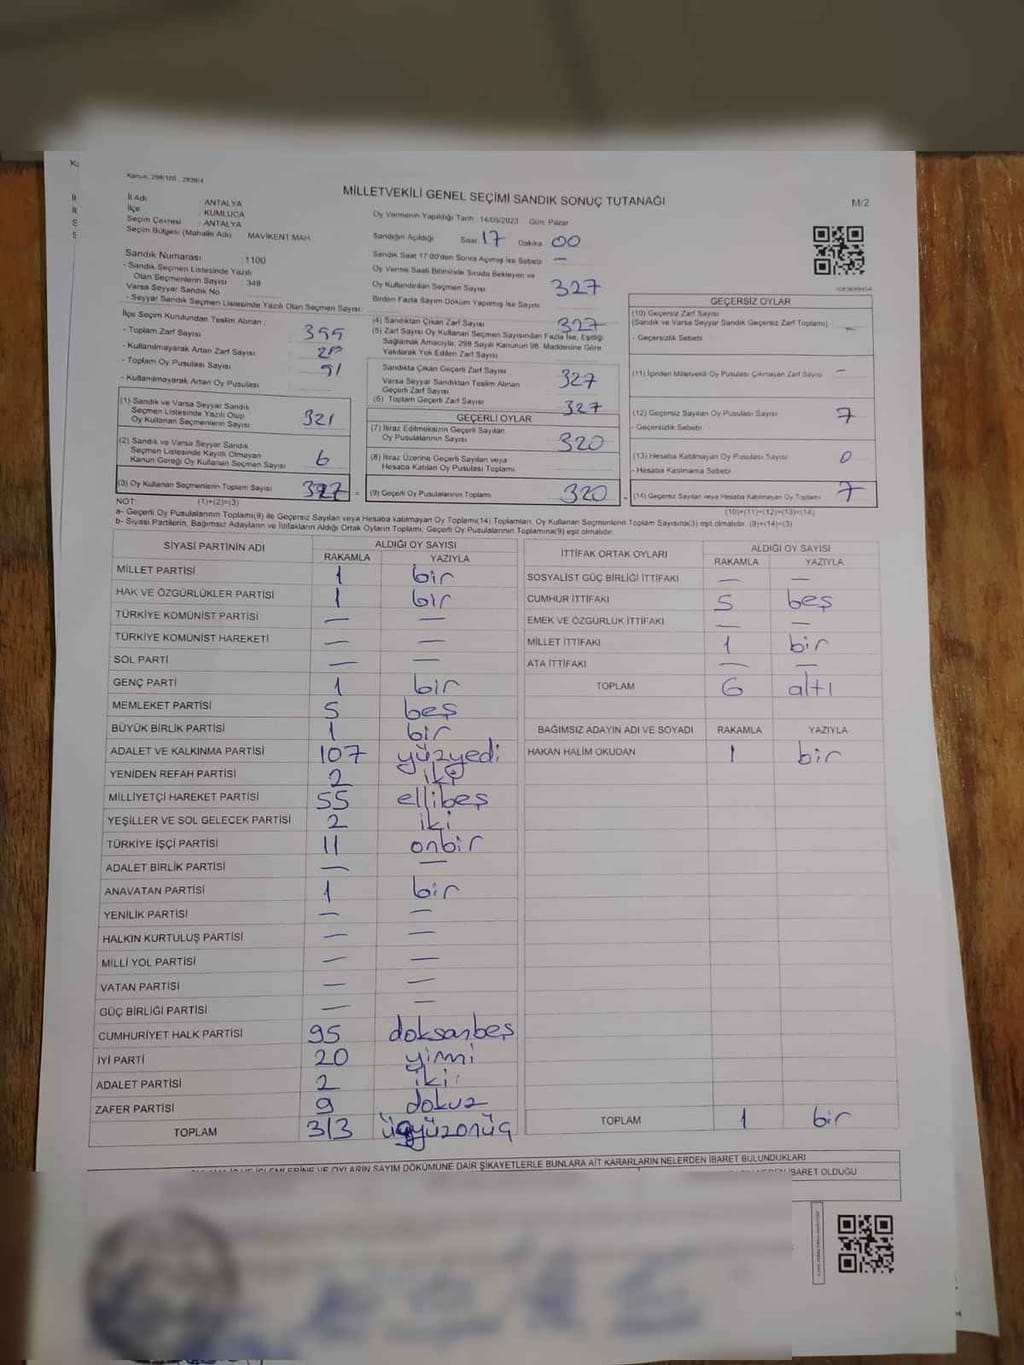 Kanun: 298/105 , 2839/4
MİLLETVEKİLİ GENEL SEÇİMİ SANDIK SONUÇ TUTANAĞI
M/2
İl Adı : ANTALYA
İlçe : KUMLUCA
Seçim Çevresi : ANTALYA
Seçim Bölgesi (Mahalle Adı) MAVİKENT MAH.
Oy Vermenin Yapıldığı Tarih : 14/05/2023 Gün: Pazar
Sandığın Açıldığı Saat 17 Dakika 00
Sandık Saat 17.00'den Sonra Açılmış İse Sebebi —
Oy Verme Saati Bitiminde Sırada Bekleyen ve
Oy Kullandırılan Seçmen Sayısı 327
Birden Fazla Sayım Döküm Yapılmış İse Sayısı
Sandık Numarası : 1100
- Sandık Seçmen Listesinde Yazılı
Olan Seçmenlerin Sayısı : 349
Varsa Seyyar Sandık No
- Seyyar Sandık Seçmen Listesinde Yazılı Olan Seçmen Sayısı:
İlçe Seçim Kurulundan Teslim Alınan :
- Toplam Zarf Sayısı
- Kullanılmayarak Artan Zarf Sayısı
- Toplam Oy Pusulası Sayısı
- Kullanılmayarak Artan Oy Pusulası
(1) Sandık ve Varsa Seyyar Sandık
Seçmen Listesinde Yazılı Olup
Oy Kullanan Seçmenlerin Sayısı 321
(2) Sandık ve Varsa Seyyar Sandık
Seçmen Listesinde Kayıtlı Olmayan
Kanun Gereği Oy Kullanan Seçmen Sayısı 6
(3) Oy Kullanan Seçmenlerin Toplam Sayısı 327 =
NOT: (1)+(2)=(3)
(4) Sandıktan Çıkan Zarf Sayısı 327
(5) Zarf Sayısı Oy Kullanan Seçmen Sayısından Fazla İse, Eşitliği
Sağlamak Amacıyla, 298 Sayılı Kanunun 98. Maddesine Göre
Yakılarak Yok Edilen Zarf Sayısı
Sandıkta Çıkan Geçerli Zarf Sayısı 327
Varsa Seyyar Sandıktan Teslim Alınan
Geçerli Zarf Sayısı
(6) Toplam Geçerli Zarf Sayısı 327
GEÇERLİ OYLAR
(7) İtiraz Edilmeksizin Geçerli Sayılan
Oy Pusulalarının Sayısı 320
(8) İtiraz Üzerine Geçerli Sayılan veya
Hesaba Katılan Oy Pusulası Toplamı
(9) Geçerli Oy Pusulalarının Toplamı 320
GEÇERSİZ OYLAR
(10) Geçersiz Zarf Sayısı
(Sandık ve Varsa Seyyar Sandık Geçersiz Zarf Toplamı) —
- Geçersizlik Sebebi:
(11) İçinden Milletvekili Oy Pusulası Çıkmayan Zarf Sayısı —
(12) Geçersiz Sayılan Oy Pusulası Sayısı 7
- Geçersizlik Sebebi
(13) Hesaba Katılmayan Oy Pusulası Sayısı 0
- Hesaba Katılmama Sebebi
(14) Geçersiz Sayılan veya Hesaba Katılmayan Oy Toplamı 7
(10)+(11)+(12)+(13)=(14)
a- Geçerli Oy Pusulalarının Toplamı(9) ile Geçersiz Sayılan veya Hesaba katılmayan Oy Toplamı(14) Toplamları, Oy Kullanan Seçmenlerin Toplam Sayısına(3) eşit olmalıdır. (9)+(14)=(3)
b- Siyasi Partilerin, Bağımsız Adayların ve İttifakların Aldığı Ortak Oyların Toplamı, Geçerli Oy Pusulalarının Toplamına(9) eşit olmalıdır.
SİYASİ PARTİNİN ADI ALDIĞI OY SAYISI
RAKAMLA YAZIYLA
MİLLET PARTİSİ 1 bir
HAK VE ÖZGÜRLÜKLER PARTİSİ 1 bir
TÜRKİYE KOMÜNİST PARTİSİ — —
TÜRKİYE KOMÜNİST HAREKETİ — —
SOL PARTİ — —
GENÇ PARTİ 1 bir
MEMLEKET PARTİSİ 5 beş
BÜYÜK BİRLİK PARTİSİ 1 bir
ADALET VE KALKINMA PARTİSİ 107 yüzyedi
YENİDEN REFAH PARTİSİ 2 iki
MİLLİYETÇİ HAREKET PARTİSİ 55 ellibeş
YEŞİLLER VE SOL GELECEK PARTİSİ 2 iki
TÜRKİYE İŞÇİ PARTİSİ 11 onbir
ADALET BİRLİK PARTİSİ — —
ANAVATAN PARTİSİ 1 bir
YENİLİK PARTİSİ — —
HALKIN KURTULUŞ PARTİSİ — —
MİLLİ YOL PARTİSİ — —
VATAN PARTİSİ — —
GÜÇ BİRLİĞİ PARTİSİ — —
CUMHURİYET HALK PARTİSİ 95 doksanbeş
İYİ PARTİ 20 yirmi
ADALET PARTİSİ 2 iki
ZAFER PARTİSİ 9 dokuz
TOPLAM 313 üçyüzonüç
İTTİFAK ORTAK OYLARI ALDIĞI OY SAYISI
RAKAMLA YAZIYLA
SOSYALİST GÜÇ BİRLİĞİ İTTİFAKI — —
CUMHUR İTTİFAKI 5 beş
EMEK VE ÖZGÜRLÜK İTTİFAKI — —
MİLLET İTTİFAKI 1 bir
ATA İTTİFAKI — —
TOPLAM 6 altı
BAĞIMSIZ ADAYIN ADI VE SOYADI RAKAMLA YAZIYLA
HAKAN HALİM OKUDAN 1 bir
TOPLAM 1 bir
İŞLEMLERİNE VE OYLARIN SAYIM DÖKÜMÜNE DAİR ŞİKAYETLERLE BUNLARA AİT KARARLARIN NELERDEN İBARET BULUNDUKLARI
İBARET OLDUĞU